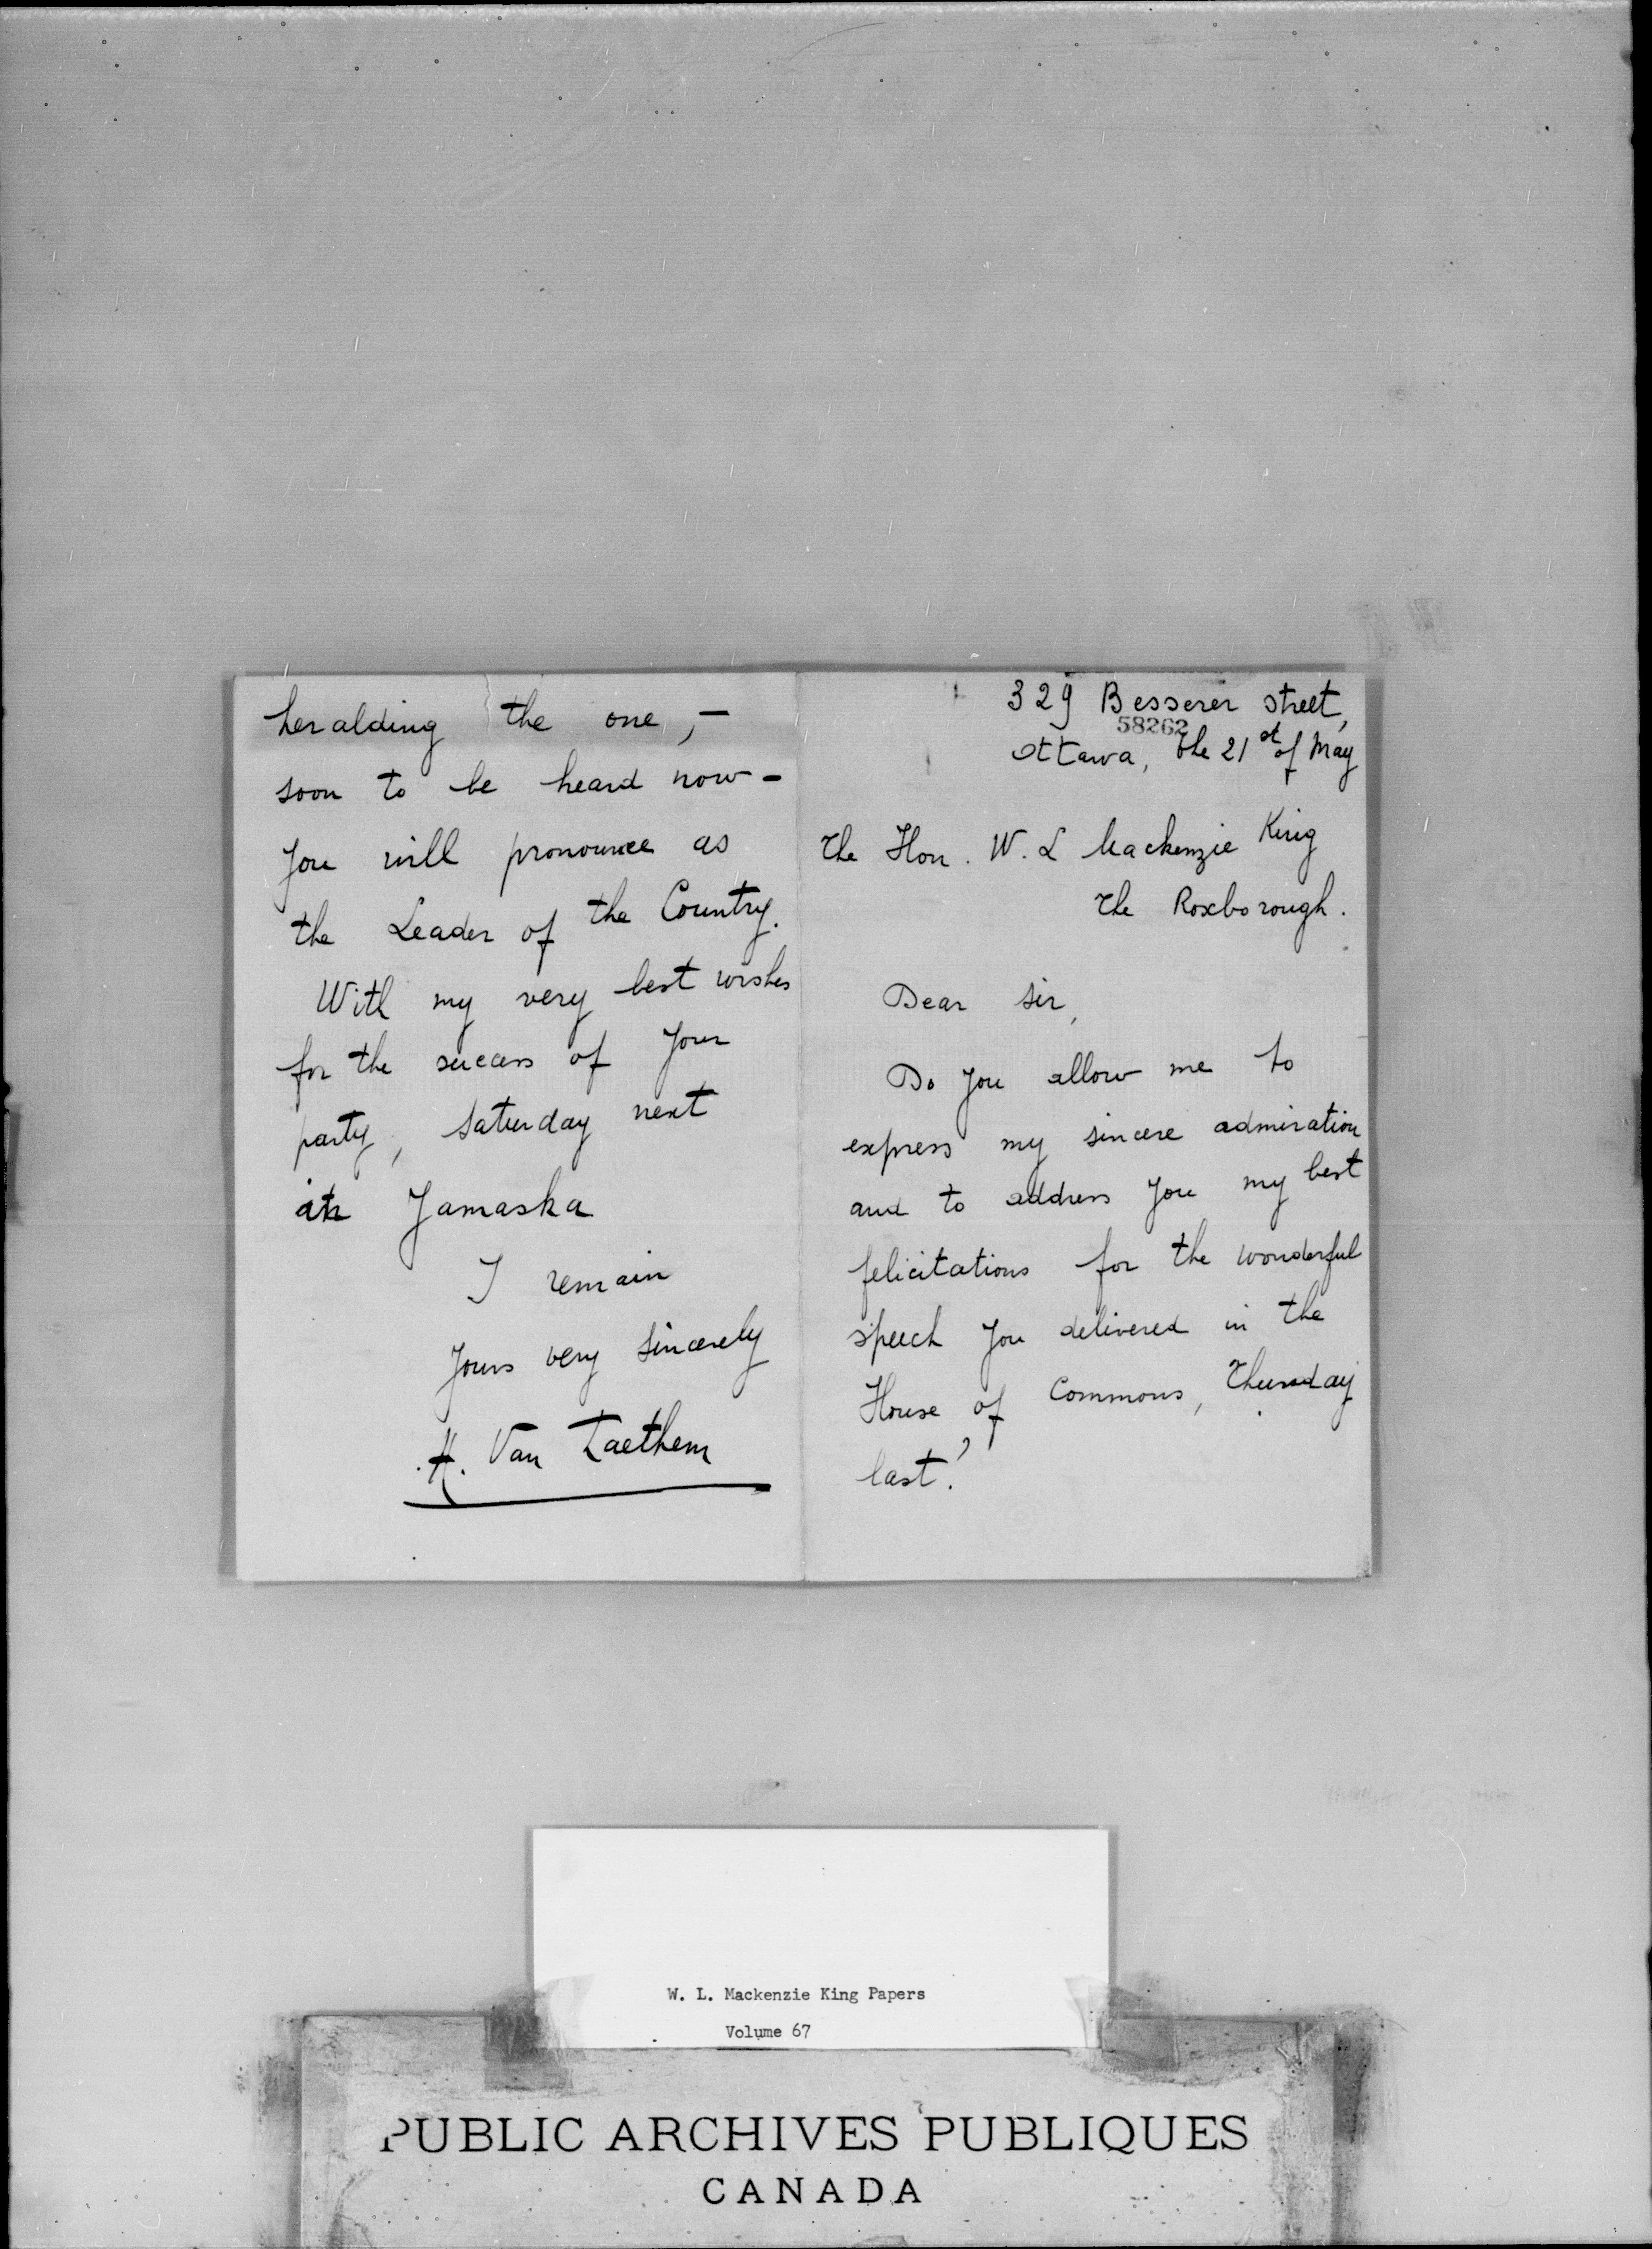 329 Besserer street,
58262
Ottawa, the 21st of May
The Hon. W. L Mackenzie King
The Roxborough.
Dear Sir,
Do you allow me to
express my sincere admiration
and to address you my best
felicitations for the wonderful
speech you delivered in the
House of Commons, Thursday
last?
heralding the one, –
soon to be heard now –
you will pronounce as
the Leader of the Country.
With my very best wishes
for the success of your
party, Saturday next
in Yamaska
I remain
Yours very sincerely
H. Van Laethem
W. L. Mackenzie King Papers
Volume 67
PUBLIC ARCHIVES PUBLIQUES
CANADA